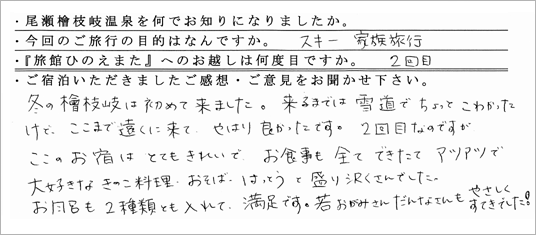 ・尾瀬檜枝岐温泉を何でお知りになりましたか。
・今回のご旅行の目的はなんですか。 スキー 家族旅行
・『旅館ひのえまた』へのお越しは何度目ですか。 2回目
・ご宿泊いただきましたご感想・ご意見をお聞かせ下さい。
冬の檜枝岐は初めて来ました。来るまでは雪道でちょっとこわかった
けど、ここまで遠くに来て、やはり良かったです。2回目なのですが
ここのお宿はとてもきれいで、お食事も全てできたてアツアツで
大好きなきのこ料理・おそば・はっとうと盛り沢くさんでした。
お風呂も2種類とも入れて、満足です。若おかみさんだんなさんもやさしく
すてきでした!